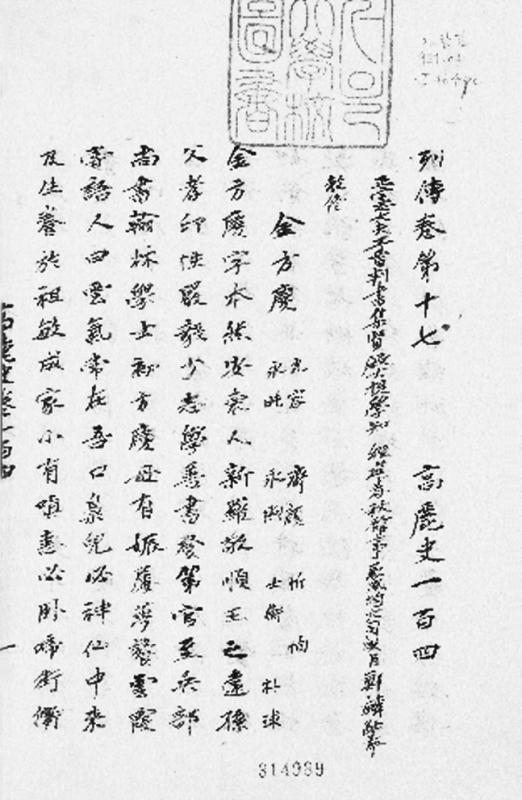 大學校
圖書
列傳卷第十七 高麗史一百四
正憲大夫工曹判書集賢殿大提學知 經筵春秋館事兼成均大司成臣鄭麟趾奉
敎修
金方慶 九容 齊顔 忻 恂
永旽 永煦 士衡 朴球
金方慶字本然安東人新羅敬順王之遠孫
父孝印性嚴毅少志學善書登第官至兵部
尙書翰林學士初方慶母有娠屢夢餐雲霞
嘗語人曰雲氣常在吾口鼻兒必神仙中來
及生養於祖敏成家小有嗔恚必臥啼街衢
高麗史卷一百四 一
314989